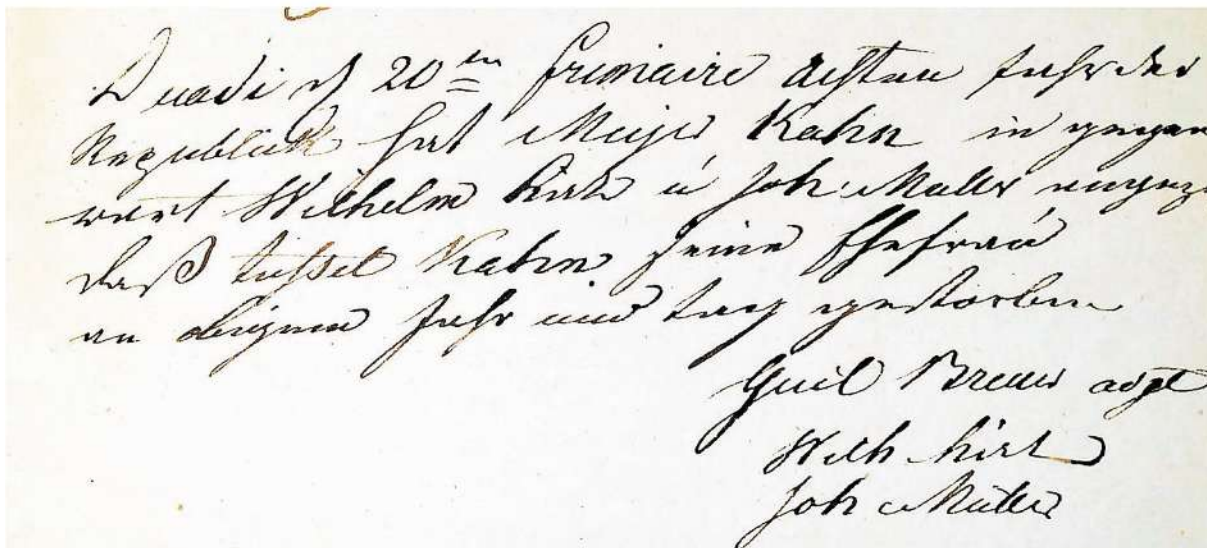 Duodi d 20ten frimaire achten Jahr der
Republick hat Meijer Kahn in gegen
wart Wilhelm u Joh Muller angeze
daß Kahn seine Ehefrau
an obigem Jahr und tag gestorben
Guil Breuer adgt
Wilh
Joh Muller